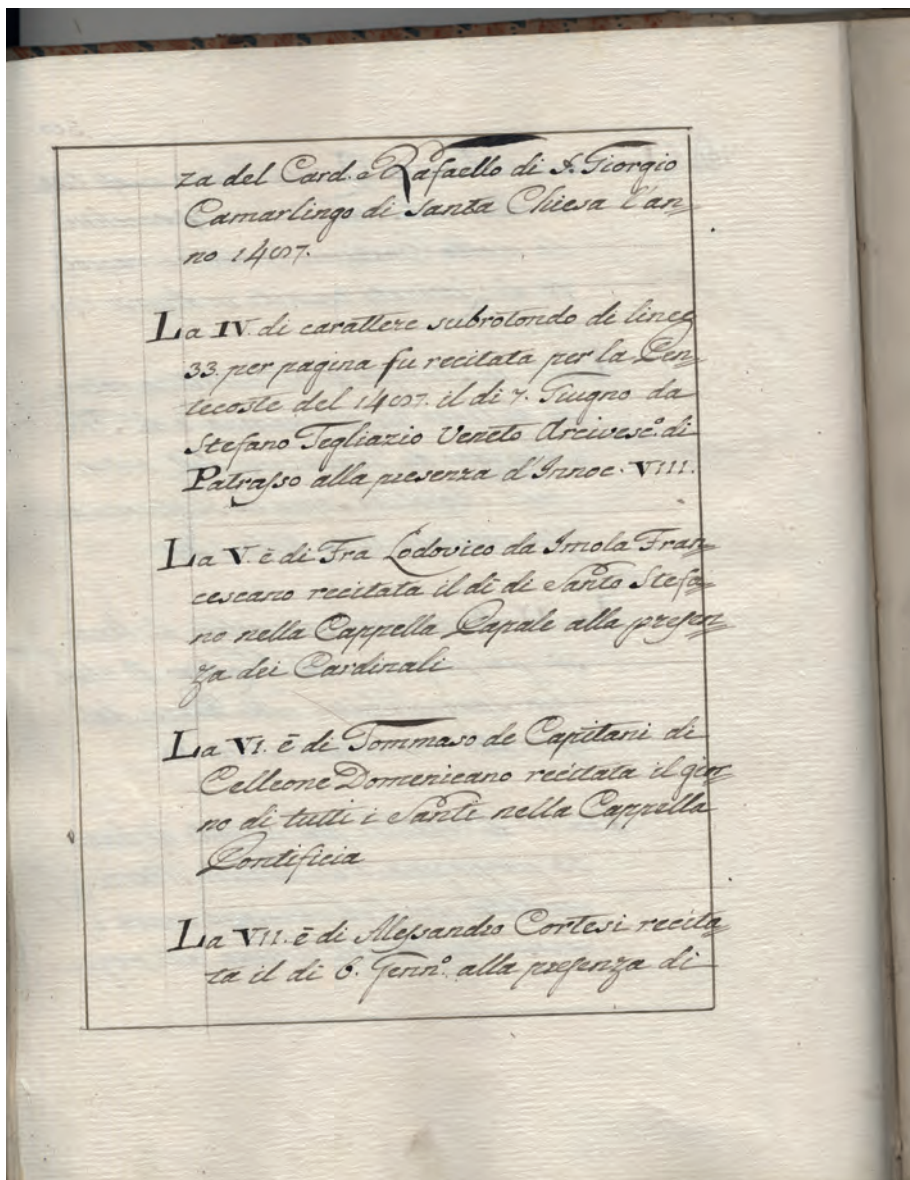 za del Card.e Rafaello di S. Giorgio
Camarlingo di Santa Chiesa l'an=
no 1487.
La IV. di carattere subrotondo di linee
33. per pagina fu recitata per la Pen=
tecoste del 1487. il di 7. Giugno da
Stefano Tegliazio Veneto Arcivesc.o di
Patrasso alla presenza d'Innoc. VIII.
La V. è di Fra Lodovico da Imola Fran=
cescano recitata il dì di Santo Stefa=
no nella Cappella Papale alla presen=
za dei Cardinali
La VI. è di Tommaso de Capitani di
Celleone Domenicano recitata il gior=
no di tutti i Santi nella Cappella
Pontificia
La VII. è di Alessandro Cortesi recita=
ta il di 6. Genn.o alla presenza di